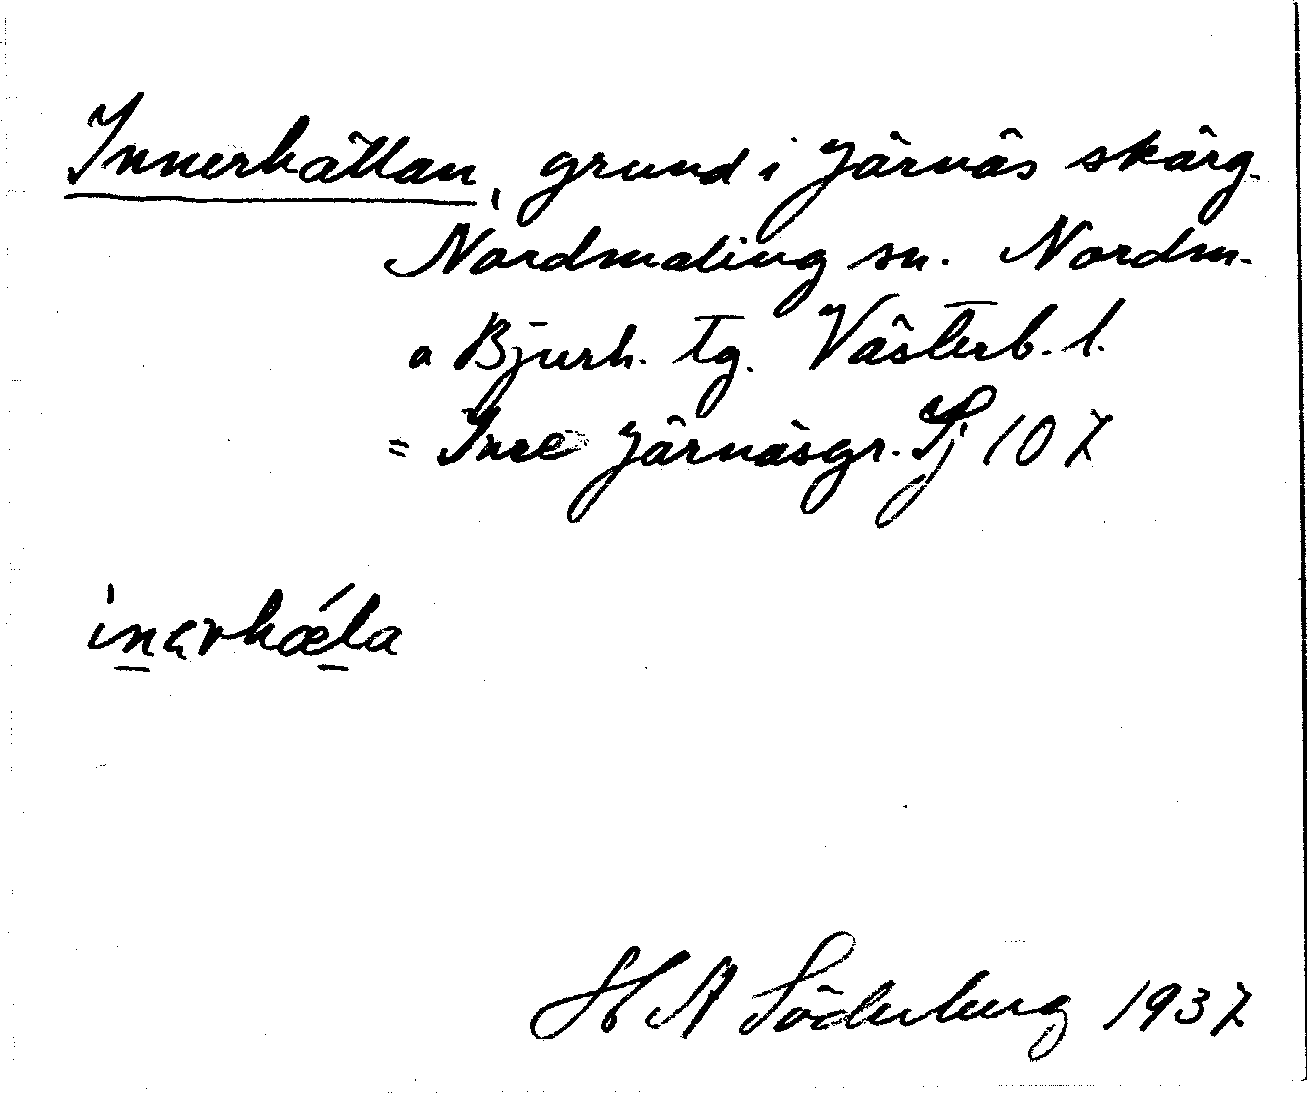 Innerhällan, grund i Järnäs skärg.
Nordmaling sn. Nordm-
o Bjurh. tg. Västerb. l.
= Inre Järnäsgr. Sj 107
inərhæla
H A Söderberg 1937